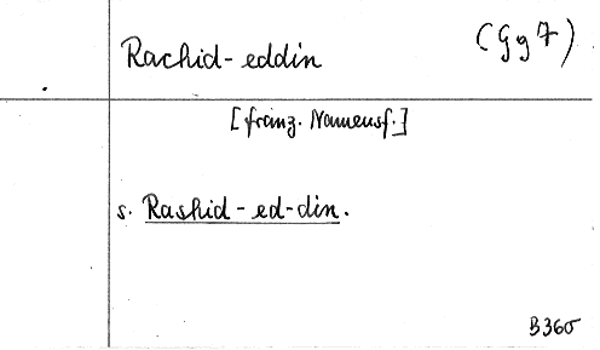 Rachid-eddin (Gg7)
[franz. Namensf.]
s. Rashid-ed-din.
B360